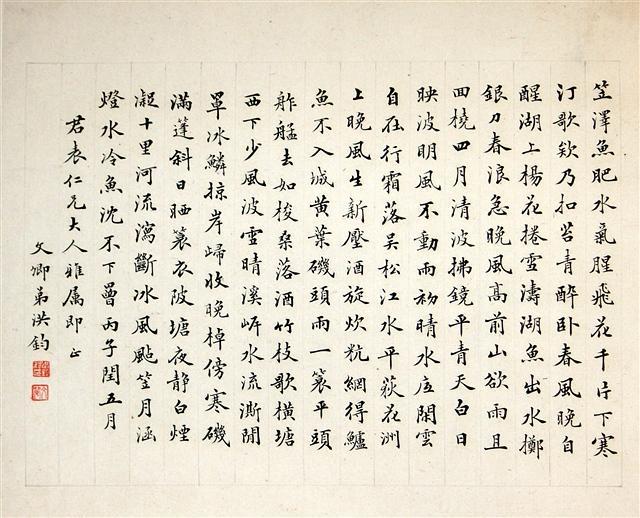 笠澤魚肥水氣腥飛花千片下寒
汀歌欸乃扣苔青醉卧春風晚自
醒湖上楊花捲雪濤湖魚出水擲
銀刀春浪急晚風高前山欲雨且
回橈四月清波拂鏡平青天白日
映波明風不動雨初晴水底閑雲
自在行霜落吳松江水平荻花洲
上晚風生新壓酒旋炊秔網得鱸
魚不入城黃葉磯頭雨一蓑平頭
舴艋去如梭桑落酒竹枝歌橫塘
西下少風波雪晴溪岸水流澌閒
罩冰鱗掠岸歸收晚棹傍寒磯
滿蓬斜日晒蓑衣陂塘夜静白煙
凝十里河流瀉斷冰風颭笠月涵
燈水冷魚沈不下罾丙子閏五月
君表仁兄大人雅属即正
文卿弟洪鈞